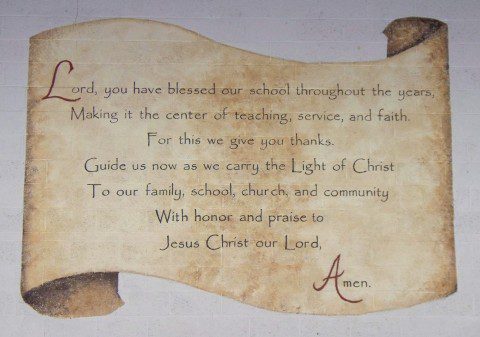 Lord, you have blessed our school throughout the years,
Making it the center of teaching, service, and faith.
For this we give you thanks.
Guide us now as we carry the Light of Christ
To our family, school, church, and community
With honor and praise to
Jesus Christ our Lord,
Amen.